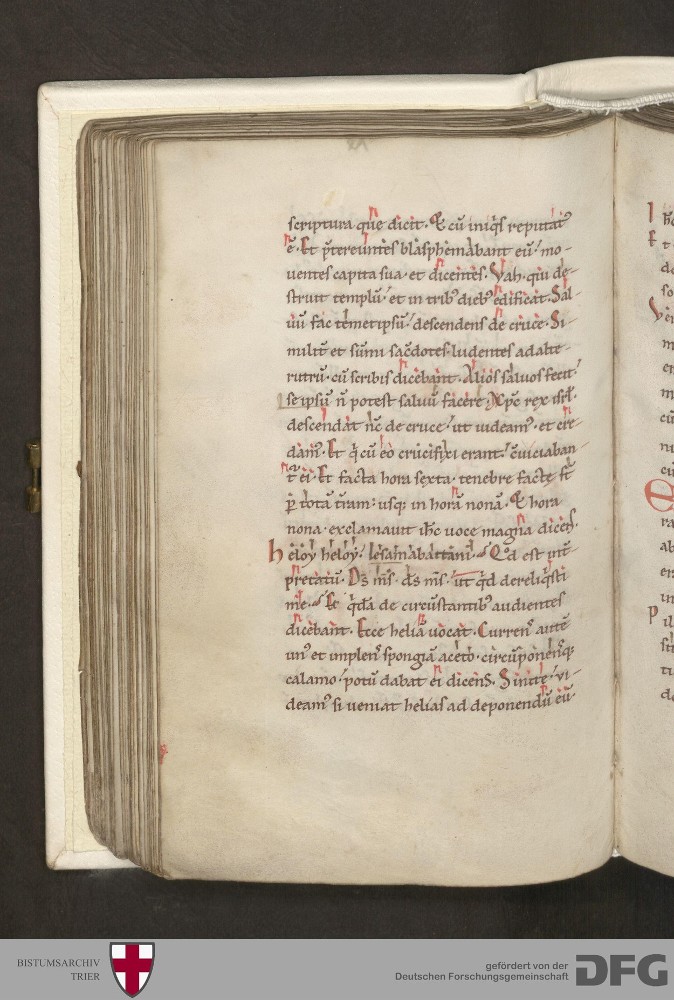 scriptura que dicit. Et cũ iniqͥs reputatꝰ
ẽ. Et p̃tereuntes blasphemabant eũ! mo-
uentes capita sua. et dicentes. Vah. qui de-
struit templũ! et in tribꝰ diebꝰ edificat. Sal-
uũ fac temetipsũ! descendens de cruce. Si-
milit̃ et sũmi sac̃dotes. ludentes ad alte-
rutrũ. cũ scribis dicebant. Alios saluos fecit!
se ipsũ ñ potest saluũ facere. Xp̃c rex isrl̃.
descendat ñc de cruce! ut uideamꝰ. et cre-
damꝰ. Et qͥ cũ eo crucifixi erant! c̃uiciaban-
t̃ ei. Et facta hora sexta. tenebre facte sͭ
ꝑ totã t̃ram! usq; in horã nonã. Et hora
nona. exclamauit ih̃c uoce magna dicens.
heloy heloy! lesamabattani. Qͦd est int̃-
pretatũ. Ds̃ ms̃. ds̃ ms̃. ut qͥd dereliqͥsti
me. Et qͥdã de circũstantibꝰ audientes
dicebant. Ecce heliã uocat. Currenꝰ autẽ
unꝰ et implenꝰ spongiã aceto. circũponenꝰq;
calamo! potũ dabat ei dicens. Sinite! ui-
deamꝰ si ueniat helias ad deponendũ eũ.
BISTUMSARCHIV
TRIER
gefördert von der
Deutschen Forschungsgemeinschaft
DFG